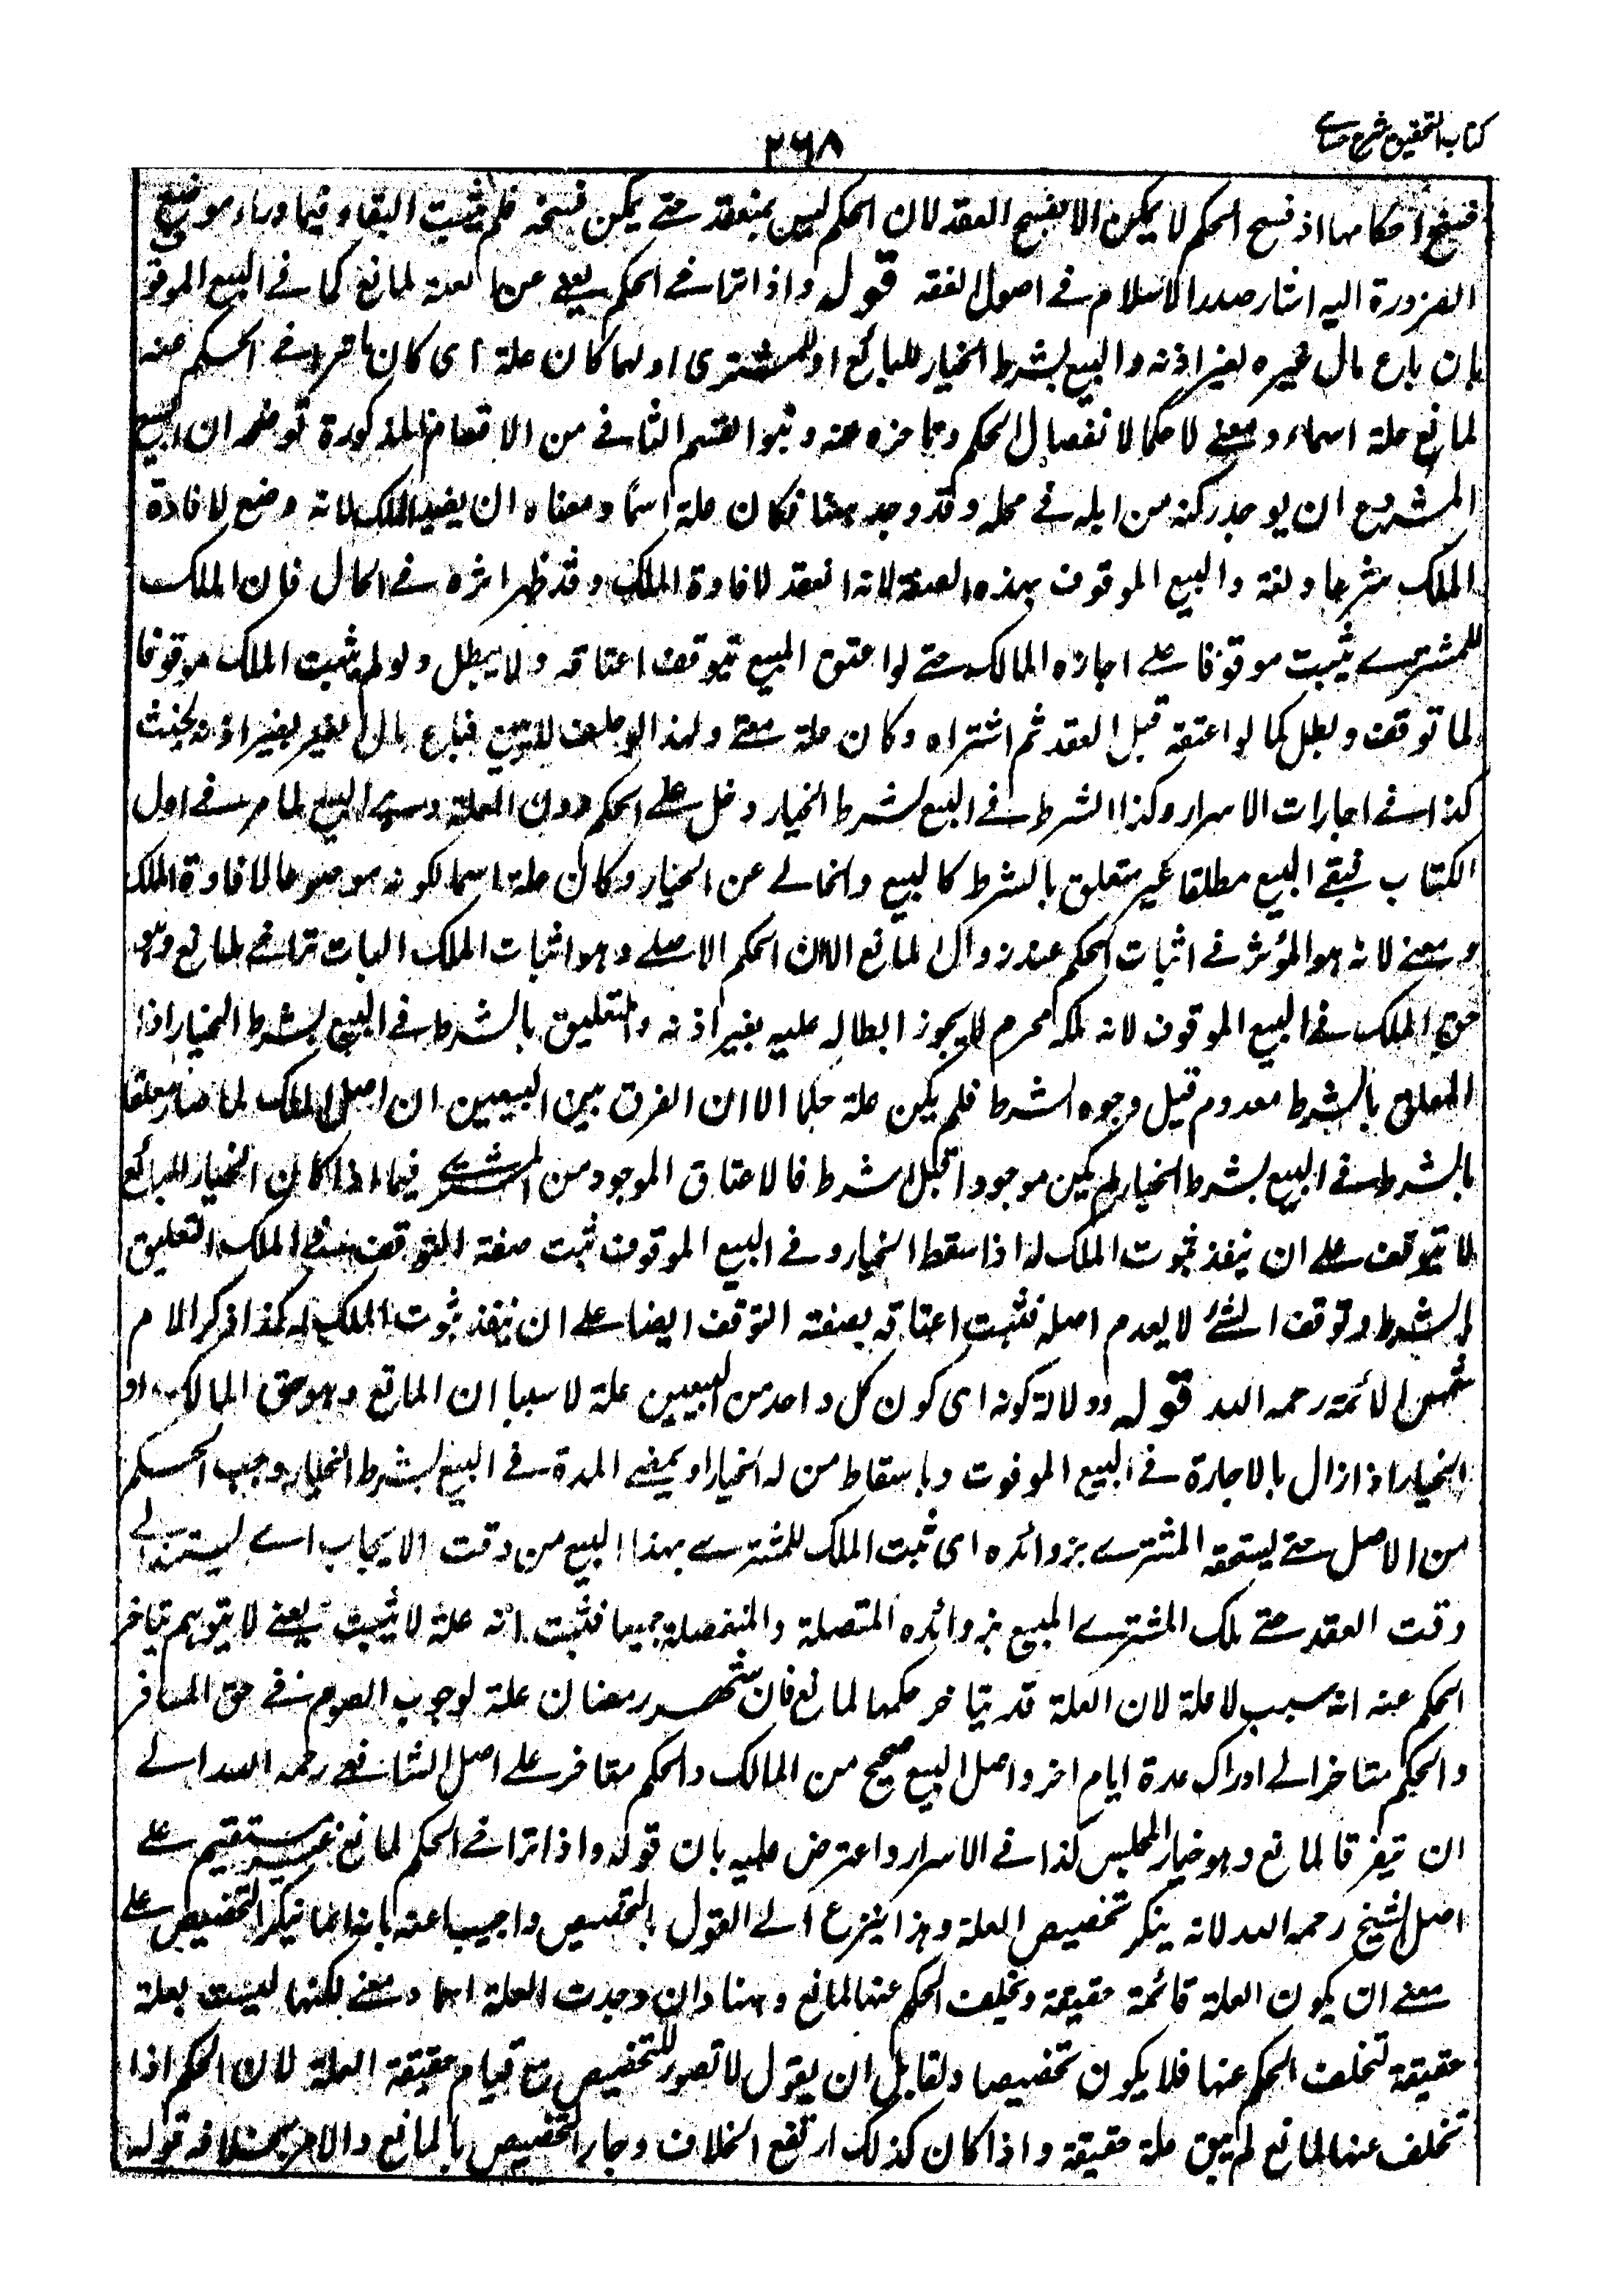 كتاب التحقيق شرح حسامے
٢٦٨
فسخ احكامها اذ فسخ الحكم لا يمكن الا بفسخ العقد لان الحكم ليس بمنعقد حتے يمكن فسخه فلم يثبت البقاء فيما وراء موضع
الضرورة اليه اشار صدر الاسلام فے اصول الفقه قوله واذا تراخے الحكم يعنے عن العلة لمانع كما فے البيع الموقوف
بان باع مال غيره بغير اذنه والبيع بشرط الخيار للبائع او للمشترى او لهما كان علة اى كان ما تراخے الحكم عنه
لمانع علة اسماء ومعنے لا حكما لانفصال الحكم وتاخره عنه وهو القسم الثانے من الاقسام المذكورة توضحه ان البيع
المشروع ان يوجد ركنه من اهله فے محله وقد وجد ههنا فكان علة اسمًا ومعناه ان يفيد الملك لانه وضع لافادة
الملك شرعا ولغة والبيع الموقوف بهذه الصفة لانه انعقد لافادة الملك وقد ظهر اثره فے الحال فان الملك
للمشترے يثبت موقوفا علے اجازه المالك حتے لو اعتق المبيع يتوقف اعتاقه ولا يبطل ولو لم يثبت الملك موقوفا
لما توقف وبطل كما لو اعتقه قبل العقد ثم اشتراه وكان علة معنے ولهذا لو حلف لا يبيع فباع مال الغير بغير اذنه يحنث
كذا فے اجارات الاسرار وكذا الشرط فے البيع بشرط الخيار دخل علے الحكم دون العلة وهے البيع لما مر فے اول
الكتاب فبقے البيع مطلقا غير متعلق بالشرط كالبيع والخالے عن الخيار وكان علة اسما لكونه موضوعا لافادة الملك
ومعنے لانه هو المؤثر فے اثبات الحكم عند زوال المانع الا ان الحكم الاصلے وهو اثبات الملك البات تراخے لمانع وهو
حق الملك فے البيع الموقوف لانه ملك محرم لا يجوز ابطاله عليه بغير اذنه والتعليق بالشرط فے البيع بشرط الخيار اذا
المعلق بالشرط معدوم قبل وجوه الشرط فلم يكن علة حكما الا ان الفرق بين البيعين ان اصل الملك لما صار معلقا
بالشرط فے البيع بشرط الخيار لم يكن موجودا قبل الشرط فالاعتاق الموجود من المشترے فيما اذا كان الخيار للبائع
لا يتوقف علے ان ينفذ بثبوت الملك له اذا سقط الخيار وفے البيع الموقوف ثبت صفة التوقف فے الملك لا التعليق
بالشرط وتوقف الشئ لا يعدم اصله فثبت اعتاقه بصفة التوقف ايضا علے ان ينفذ بثبوت الملك له كذا ذكر الامام
شمس الائمة رحمه الله قوله ودلالة كونه اى كون كل واحد من البيعين علة لا سببا ان المانع وهو حق المالك او
الخيار اذا زال بالاجازة فے البيع الموقوف وباسقاط من له الخيار او بمضے المدة فے البيع بشرط الخيار وجب الحكم
من الاصل حتے يستحقه المشترے بزوائده اى ثبت الملك للمشترے بهذا البيع من وقت الايجاب اے يستند الے
وقت العقد حتے ملك المشترے المبيع بزوائده المتصلة والمنفصلة جميعا فثبت انه علة لا يثبت يعنے لا يتوهم بتاخر
الحكم عنه انه سبب لا علة لان العلة قد يتاخر حكمها لمانع فان شهر رمضان علة لوجوب الصوم فے حق المسافر
والحكم متاخر الے ادراك عدة ايام اخر واصل البيع صحيح من المالك والحكم متاخر علے اصل الشافعے رحمه الله الے
ان يتفرقا لمانع وهو خيار المجلس كذا فے الاسرار واعترض عليه بان قوله واذا تراخے الحكم لمانع غير مستقيم علے
اصل الشيخ رحمه الله لانه ينكر تخصيص العلة وهذا ينزع الے القول بالتخصيص واجيب عنه بانه انما ينكر التخصيص علے
معنے ان يكون العلة قائمة حقيقة ويخلف الحكم عنها لمانع وهنا وان وجدت العلة اسما ومعنے لكنها ليست بعلة
حقيقة لتخلف الحكم عنها فلا يكون تخصيصا ولقابل ان يقول لا تصور للتخصيص مع قيام حقيقة العلة لان الحكم اذا
تخلف عنها لمانع لم يبق علة حقيقة واذا كان كذلك ارتفع الخلاف وجاز التخصيص بالمانع والامر بخلافه قوله